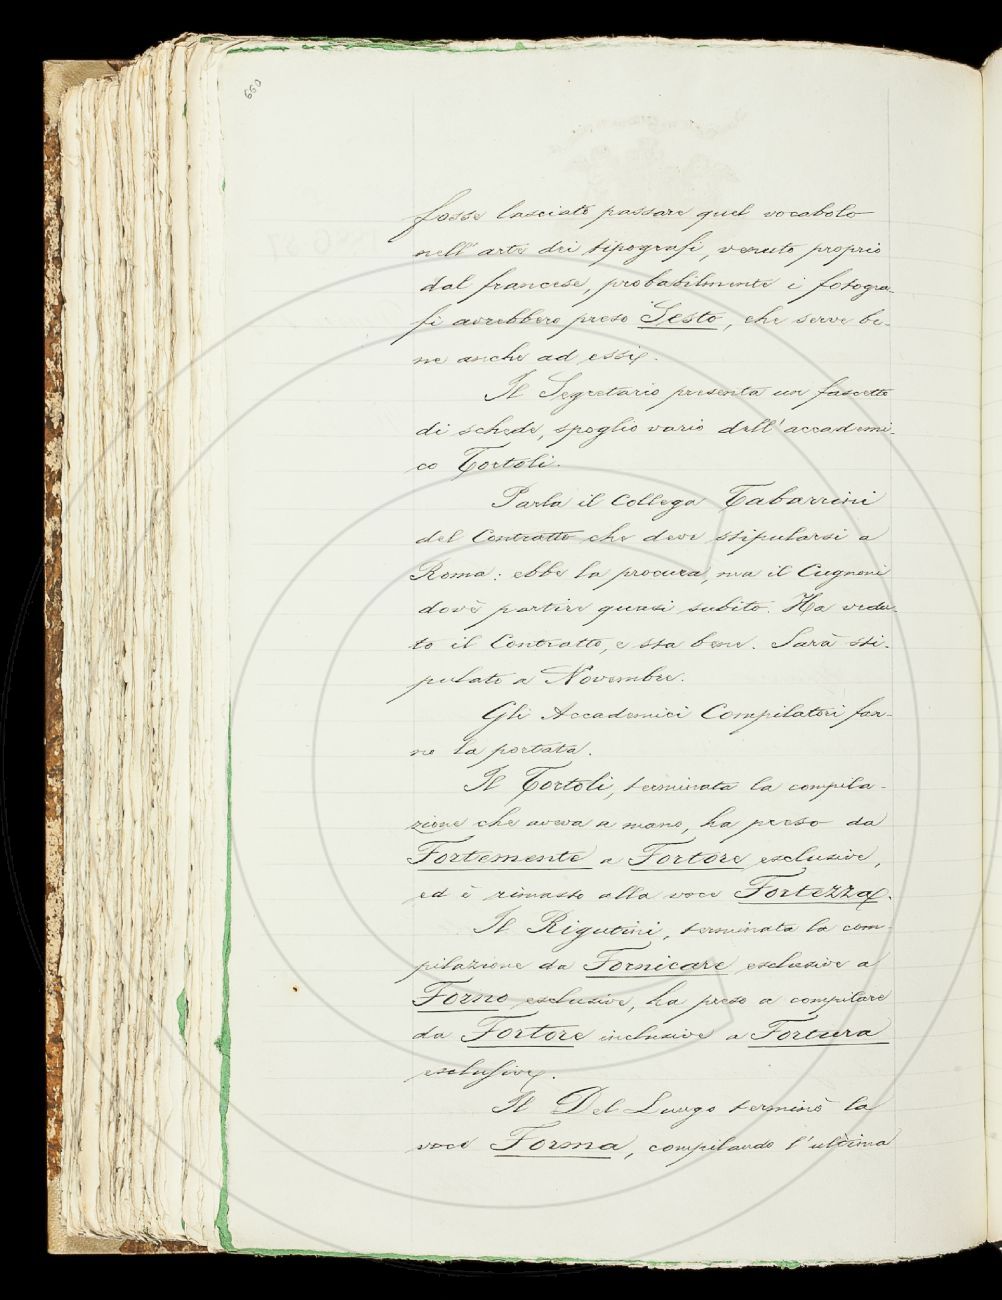 660
fosse lasciato passare quel vocabolo
nell'arte dei tipografi, venuto proprio
dal francese, probabilmente i fotogra-
fi avrebbero preso Sesto, che serve be-
ne anche ad essi.
Il Segretario presenta un fascetto
di schede, spoglio vario dell'accademi-
co Tortoli.
Parla il Collega Tabarrini
del Contratto che deve stipularsi a
Roma: ebbe la procura, ma il Cugnoni
dovè partire quasi subito. Ha vedu-
to il Contratto, e sta bene. Sarà sti-
pulato a Novembre.
Gli Accademici Compilatori fan-
no la portata.
Il Tortoli, terminata la compila-
zione che aveva a mano, ha preso da
Fortemente a Fortore exclusive,
ed è rimasto alla voce Fortezza.
Il Rigutini, terminata la com-
pilazione da Fornicare exclusive a
Forno exclusive, ha preso a compilare
da Fortore inclusive a Fortura
exclusive.
Il Del Lungo terminò la
voce Forma, compilando l'ultima